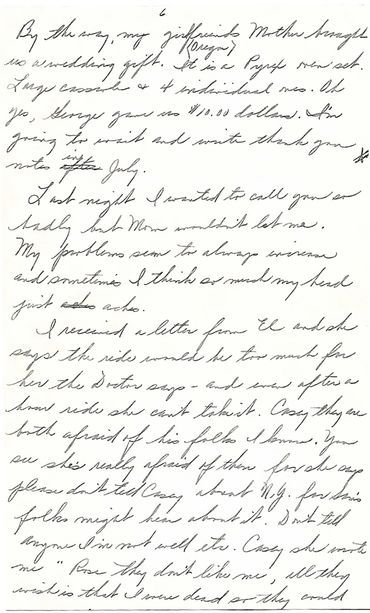 6
By the way, my girlfriends Mother brought
(Oregon)
us a wedding gift. It is a Pyrex oven set.
Large cassole & 4 individual ones. Oh
yes, George gave us $10.00 dollars. I'm
going to wait and write thank you
notes after in July.
Last night I wanted to call you so
badly but Mom wouldn't let me.
My problems seem to always increase
and sometimes I think so much my head
just aches aches.
I received a letter from El and she
says the ride would be too much for
her the Doctor says - and even after a
hour ride she can't take it. Casey they are
both afraid of his folks I know. You
see she's really afraid of them for she says
please don't tell Casey about N.Y. for
folks might hear about it. Don't tell
anyone I'm not well etc. Casey she wrote
me "Rose they don't like me, all they
wish is that I were dead so they could